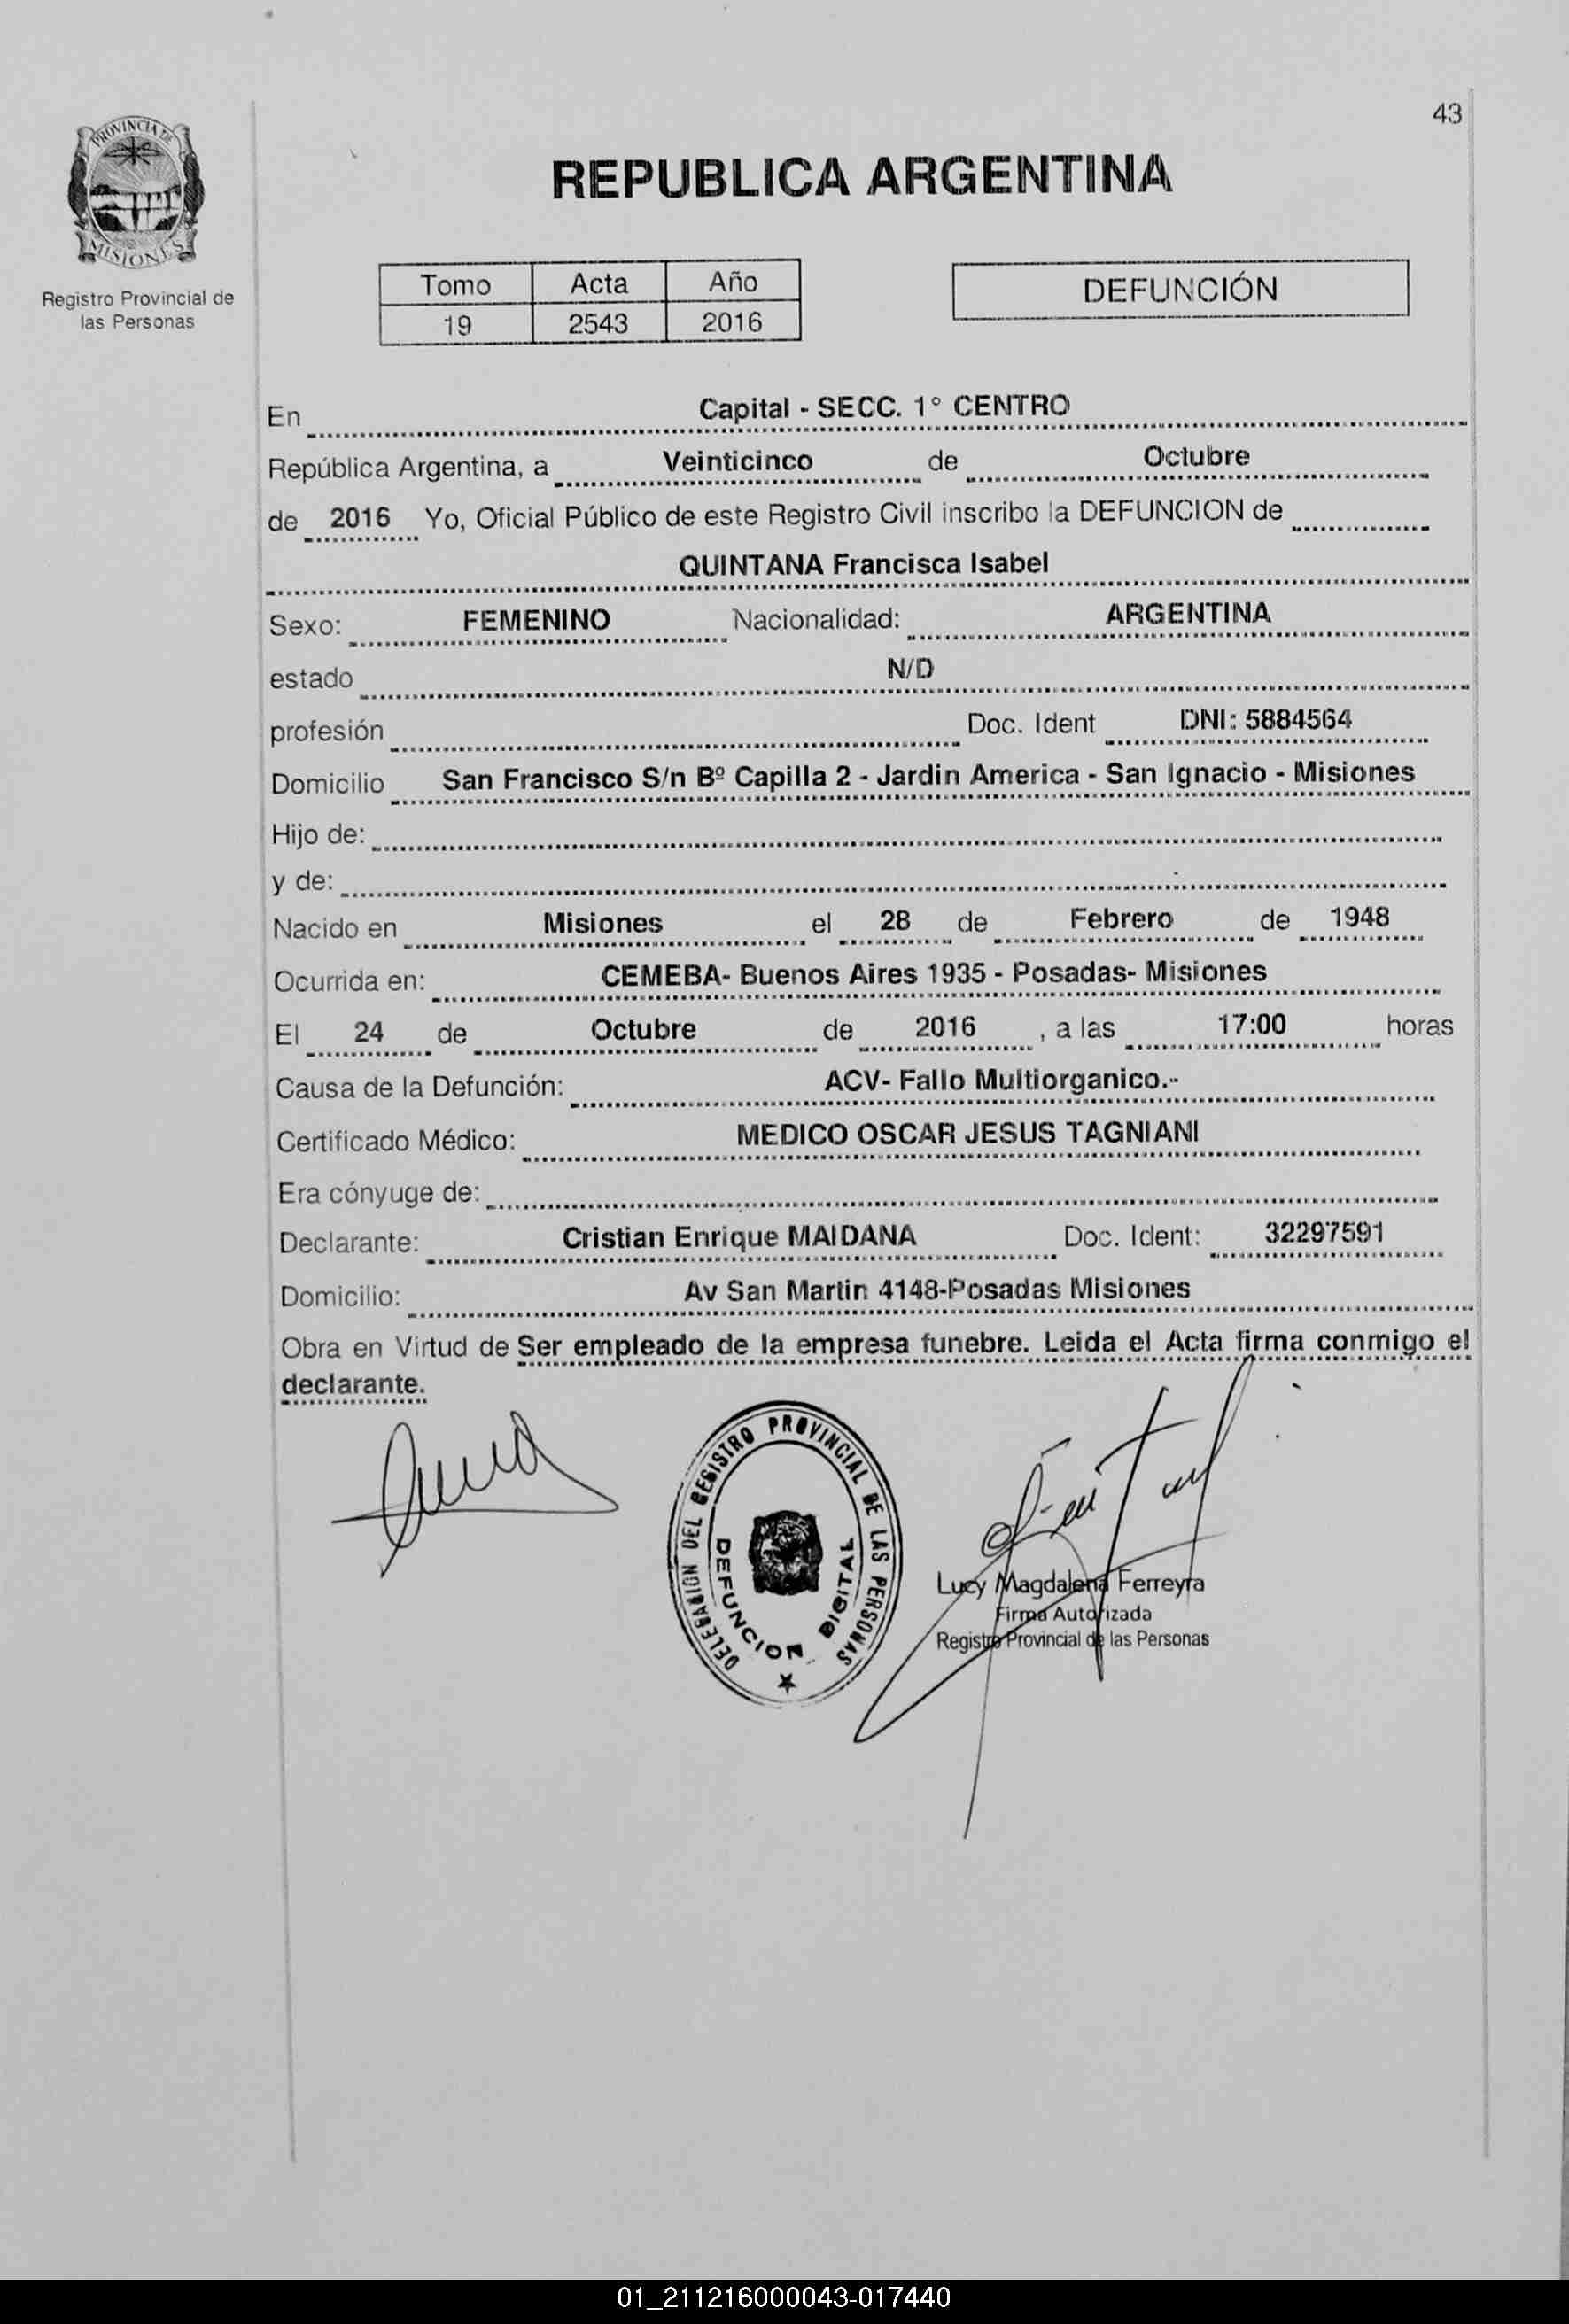 43
PROVINCIA DE
MISIONES
Registro Provincial de
las Personas
REPUBLICA ARGENTINA
Tomo Acta Año
19 2543 2016
DEFUNCIÓN
En Capital - SECC. 1° CENTRO
República Argentina, a Veinticinco de Octubre
de 2016 Yo, Oficial Público de este Registro Civil inscribo la DEFUNCION de
QUINTANA Francisca Isabel
Sexo: FEMENINO Nacionalidad: ARGENTINA
estado N/D
profesión Doc. Ident DNI: 5884564
Domicilio San Francisco S/n Bº Capilla 2 - Jardin America - San Ignacio - Misiones
Hijo de:
y de:
Nacido en Misiones el 28 de Febrero de 1948
Ocurrida en: CEMEBA- Buenos Aires 1935 - Posadas- Misiones
El 24 de Octubre de 2016 , a las 17:00 horas
Causa de la Defunción: ACV- Fallo Multiorganico.-
Certificado Médico: MEDICO OSCAR JESUS TAGNIANI
Era cónyuge de:
Declarante: Cristian Enrique MAIDANA Doc. Ident: 32297591
Domicilio: Av San Martin 4148-Posadas Misiones
Obra en Virtud de Ser empleado de la empresa funebre. Leida el Acta firma conmigo el
declarante.
DELEGACION DEL REGISTRO PROVINCIAL DE LAS PERSONAS
DEFUNCION DIGITAL
Lucy Magdalena Ferreyra
Firma Autorizada
Registro Provincial de las Personas
01_211216000043-017440